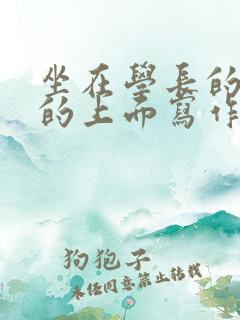 坐在學長的
的上而寫作
狗狍子
未经同意禁止转载